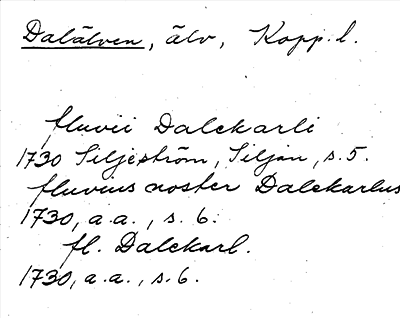 Dalälven, älv, Kopp. l.
fluvii Dalekarli
1730 Siljeström, Siljan, s. 5.
fluvius noster Dalekarlus
1730, a.a., s. 6.
fl. Dalekarl.
1730, a.a., s. 6.